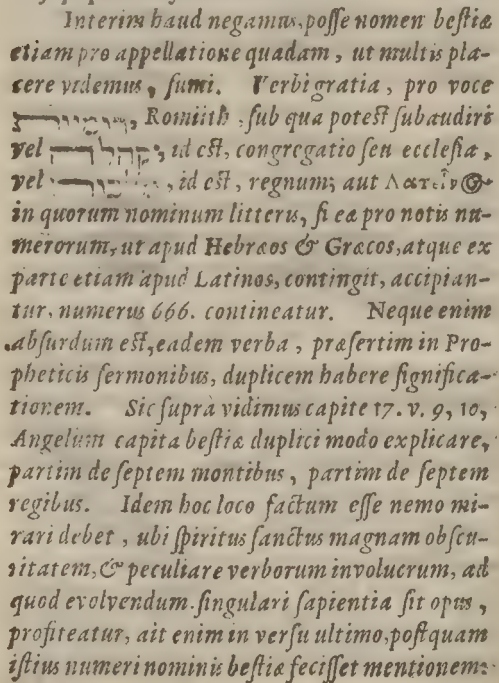 Interim haud negamus, posse nomen bestiæ
etiam pro appellatione quadam, ut multis pla-
cere videmus, sumi. Verbi gratia, pro voce
Romiith, sub qua potest subaudiri
vel id est, congregatio seu ecclesia,
vel , id est, regnum; aut Λατεῖνος
in quorum nominum litteris, si eæ pro notis nu-
merorum, ut apud Hebræos & Græcos, atque ex
parte etiam apud Latinos, contingit, accipian-
tur, numerus 666. contineatur. Neque enim
absurdum est, eadem verba, præsertim in Pro-
pheticis sermonibus, duplicem habere significa-
tionem. Sic suprà vidimus capite 17. v. 9, 10,
Angelum capita bestiæ duplici modo explicare,
partim de septem montibus, partim de septem
regibus. Idem hoc loco factum esse nemo mi-
rari debet, ubi spiritus sanctus magnam obscu-
ritatem, & peculiare verborum involucrum, ad
quod evolvendum singulari sapientia sit opus,
profiteatur, ait enim in versu ultimo, postquam
istius numeri nominis bestiæ fecisset mentionem: